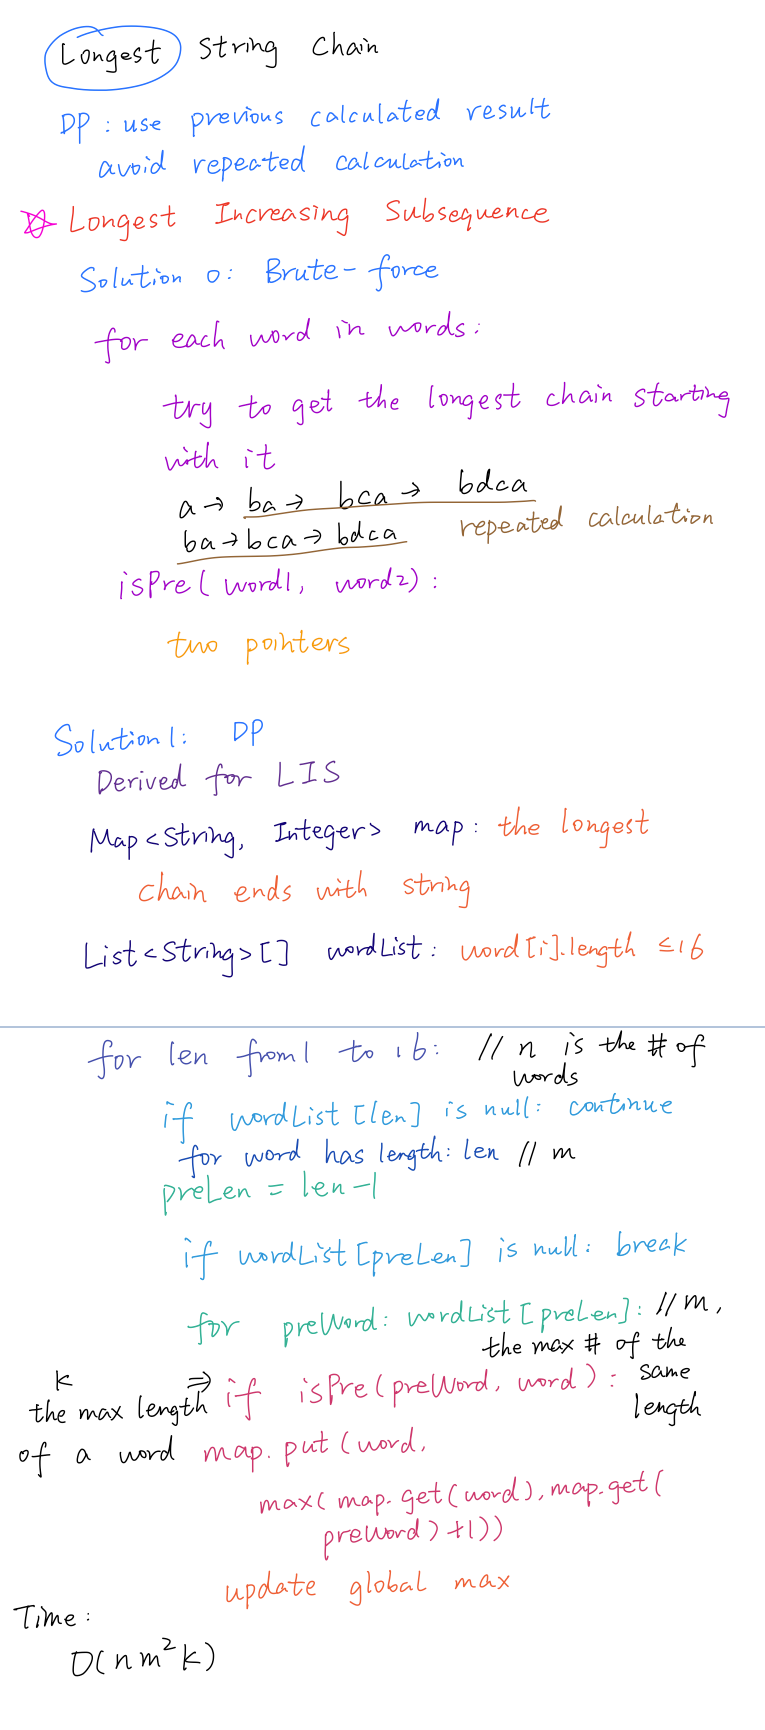 Longest String Chain
DP : use previous calculated result
avoid repeated calculation
Longest Increasing Subsequence
Solution 0: Brute-force
for each word in words:
try to get the longest chain starting
with it
a → ba → bca → bdca
ba → bca → bdca repeated calculation
isPre( word1, word2) :
two pointers
Solution 1: DP
Derived for LIS
Map<String, Integer> map: the longest
chain ends with string
List<String>[] wordList: word[i].length ≤16
for len from 1 to 16: // n is the # of
words
if wordList[len] is null: continue
for word has length: len // m
preLen = len-1
if wordList[preLen] is null: break
for preWord: wordList[preLen]: // m,
the max # of the
same
length
k
the max length
of a word
⇒ if isPre(preWord, word) :
map.put(word,
max( map.get(word), map.get(
preWord)+1))
update global max
Time:
O(nm²k)